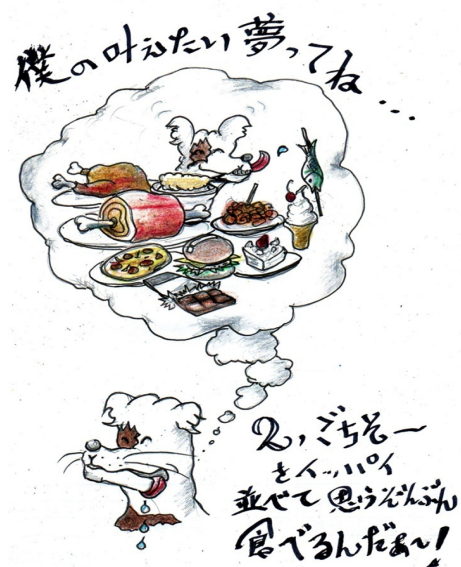 僕の叶えたい夢ってね...
2,ごちそ〜
をイッパイ
並べて思うぞんぶん
食べるんだぁ〜!